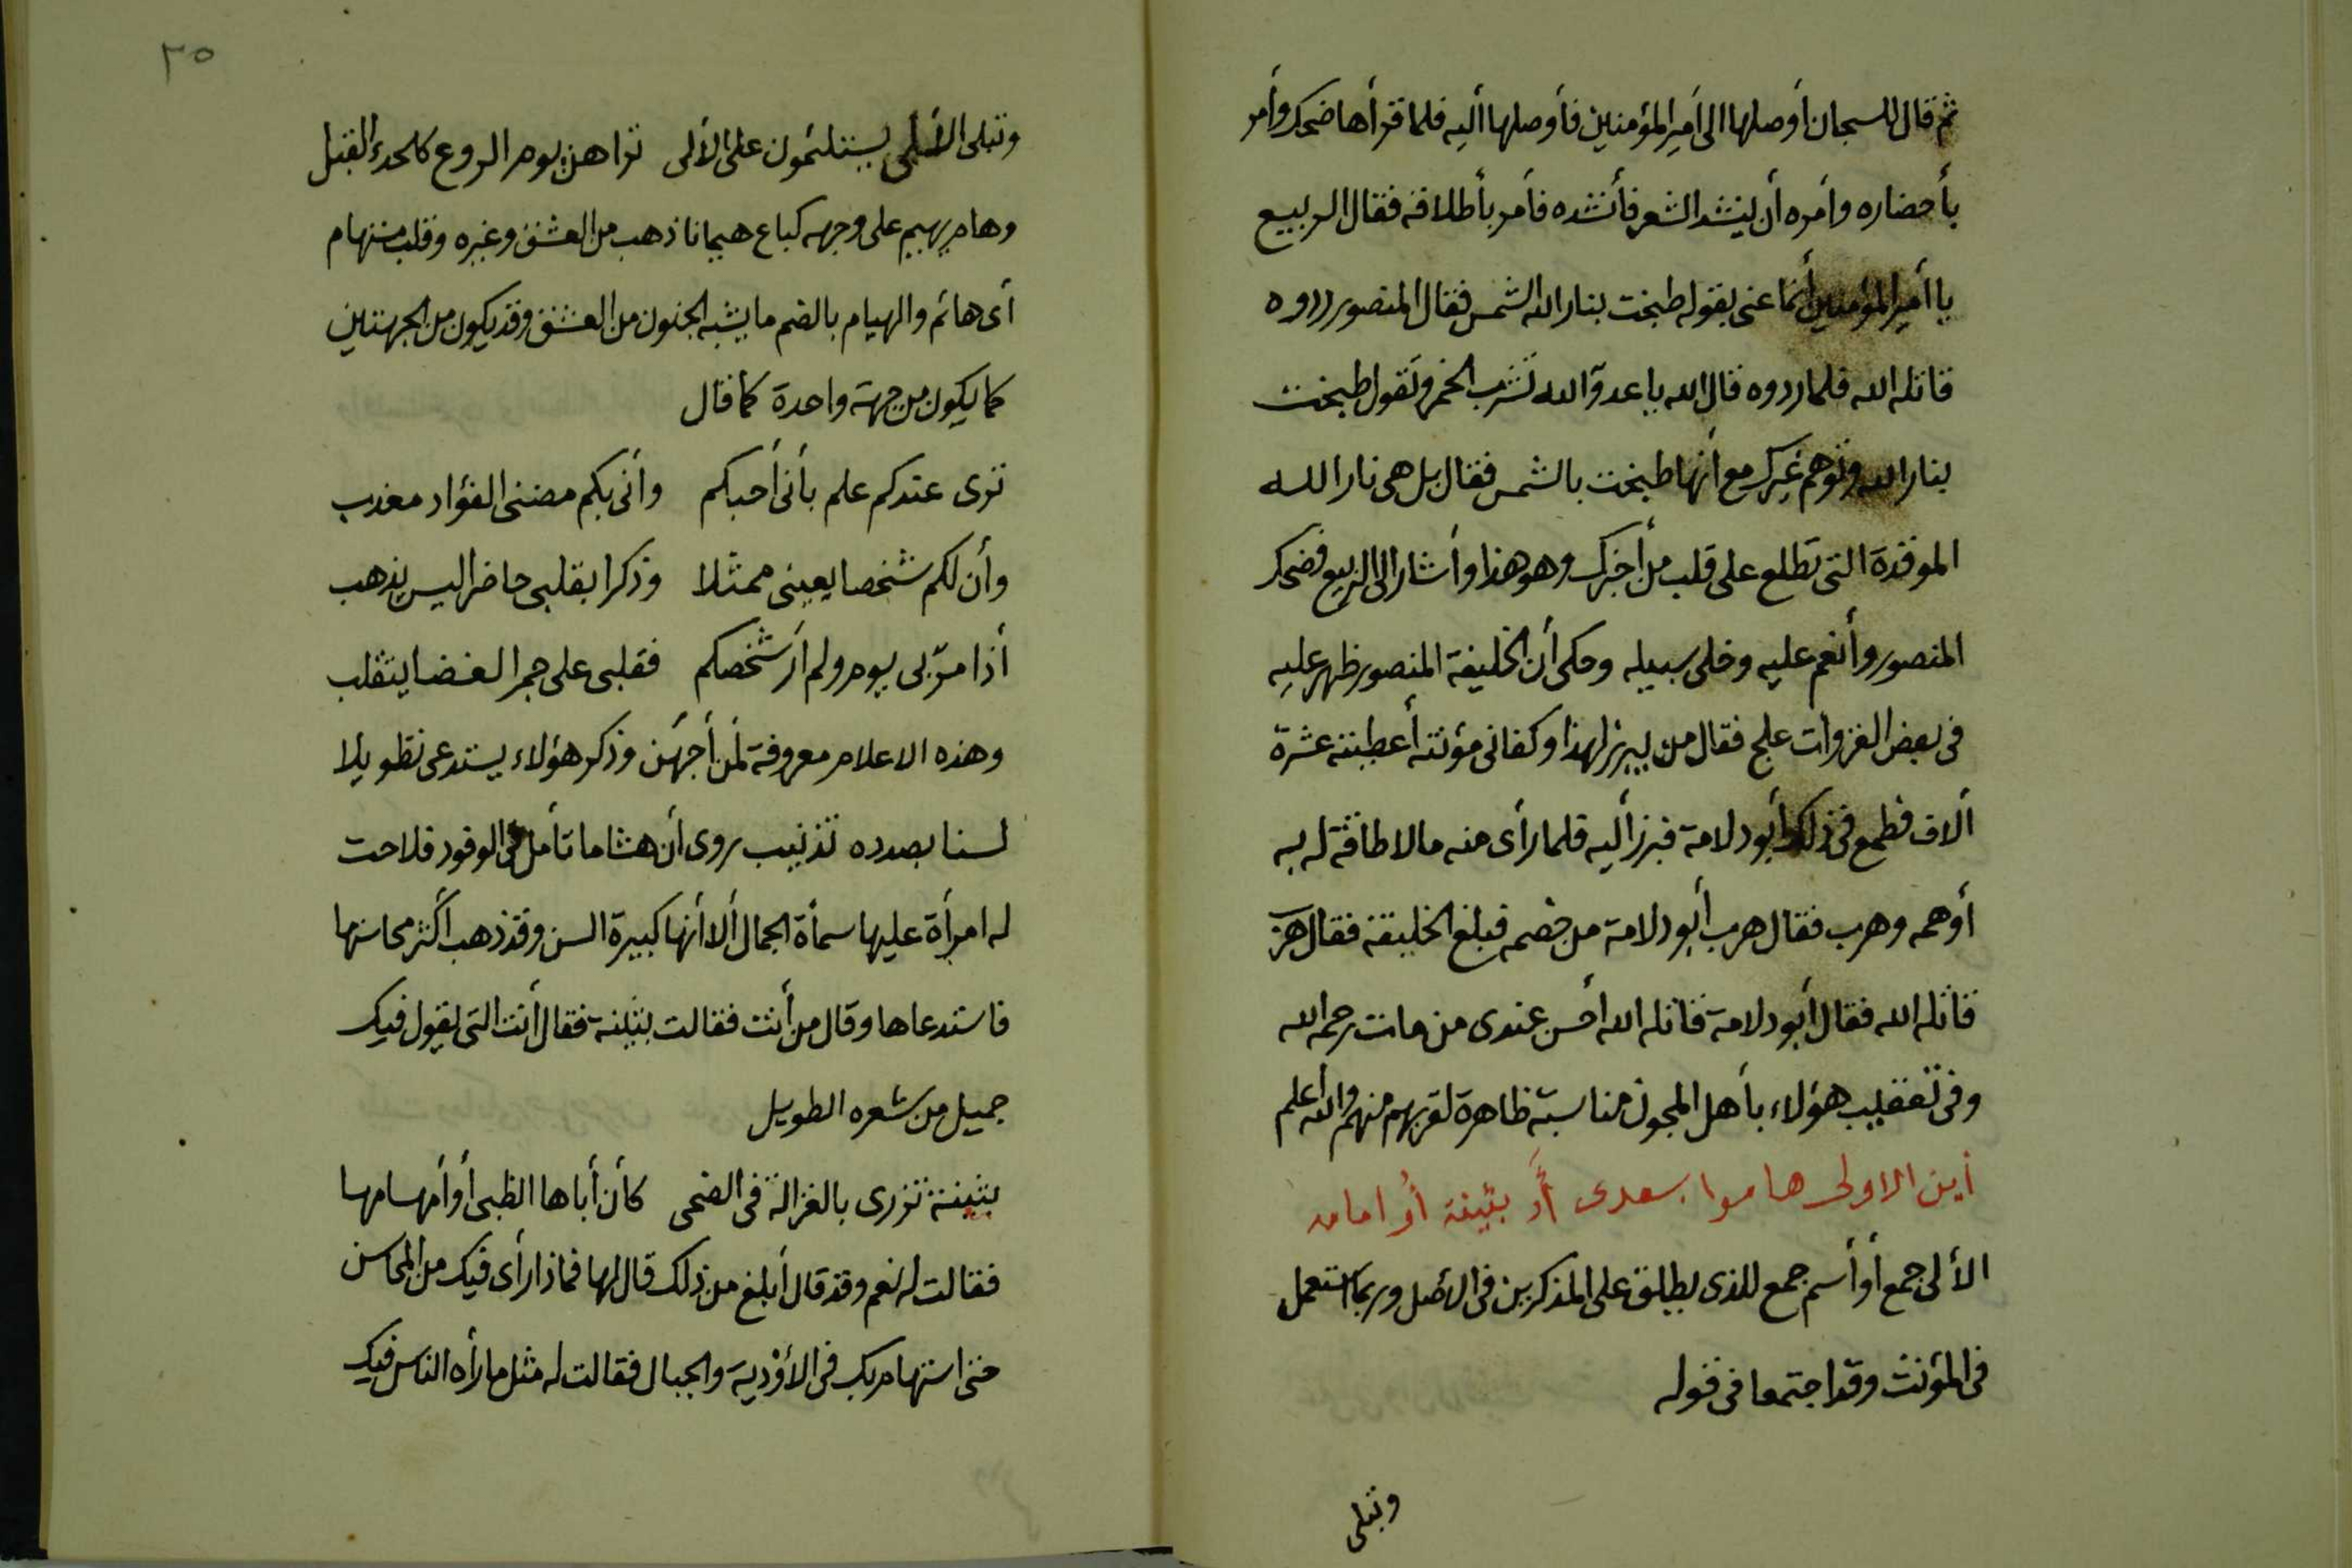 ثم قال للسجان أوصلها الى أمير المؤمنين فأوصلها أليه فلما قرأها ضحك وأمر
بأحضاره وأمره أن ينشد الشعر فأنشده فأمر بأطلاقه فقال الربيع
يا أمير المؤمنين أنما عنى بقوله طبخت بنار الله الشمس فقال المنصور ردوه
قاتله الله فلما ردوه قال الله يا عدوّ الله تشرب الخمر وتقول طبخت
بنار الله وتوهم غيرك مع أنها طبخت بالشمس فقال بل هى نار الله
الموقدة التى تطلع على قلب من أخبرك وهو هذا وأشار الى الربيع فضحك
المنصور وأنعم عليه وخلى سبيله وحكى أن الخليفة المنصور ظهر عليه
فى بعض الغزوات علج فقال من يبرز لهذا وكفانى مؤنته أعطيته عشرة
ألاف فطمع فى ذلك أبو دلامة فبرز أليه فلما رأى منه مالا طاقة له به
أوهمه وهرب فقال هرب أبو دلامة من خصمه فبلغ الخليفة فقال هرب
قاتله الله فقال أبو دلامة قاتله الله أحسن عندى من مات رحمه الله
وفى تعقيب هؤلاء بأهل المجون مناسبة ظاهرة لقربهم منهم والله أعلم
أين الاولى هاموا بسعدى أو بثينة أو امامه
الألى جمع أو أسم جمع للذى يطلق على المذكرين فى الأصل وربما استعمل
فى المؤنث وقد اجتمعا فى قوله
وتبلى
٣٥
وتبلى الألى يستلئمون على الألى تراهن يوم الروع كالحدء القبل
وهام يهيم على وجهه كباع هيمانا ذهب من العشق وغيره وقلب مستهام
أى هائم والهيام بالضم ما يشبه الجنون من العشق وقد يكون من الجهتين
كما يكون من جهة واحدة كما قال
ترى عندكم علم بأنى أحبكم وأنى بكم مضنى الفؤاد معذب
وأن لكم شخصا بعينى ممثلا وذكرا بقلبى حاضرا ليس يذهب
أذا مرّ بى يوم ولم أر شخصكم فقلبى على جمر الغضا يتقلب
وهذه الاعلام معروفة لمن أجهن وذكر هؤلاء يستدعى تطويلا
لسنا بصدده تذنيب روى أن هشاما تأمل فى الوفود فلاحت
له امرأة عليها سمأة الجمال ألا أنها كبيرة السن وقد ذهب أكثر محاسنها
فاستدعاها وقال من أنت فقالت بثينة فقال أنت التى يقول فيك
جميل من شعره الطويل
بثينة تزرى بالغزالة فى الضحى كأن أباها الظبى أو أمها مها
فقالت له نعم وقد قال أبلغ من ذلك قال لها فماذا رأى فيك من المحاسن
حتى استهام بك فى الأودية والجبال فقالت له مثل ما رأه الناس فيك